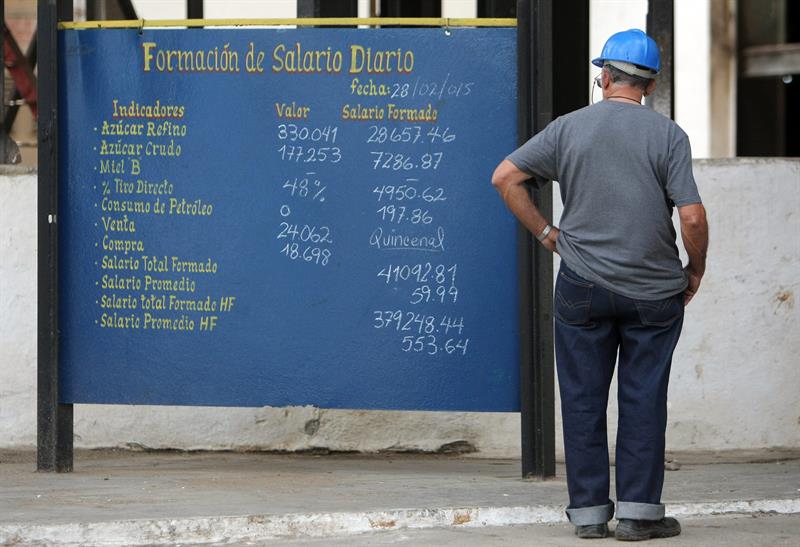 Formación de Salario Diario
fecha: 28/02/015
Indicadores Valor Salario Formado
· Azúcar Refino 330.041 28657.46
· Azúcar Crudo 177.253 7286.87
· Miel B
· % Tiro Directo 48% 4950.62
· Consumo de Petróleo 0 197.86
· Venta 24.062 Quincenal
· Compra 18.698
· Salario Total Formado 41092.81
· Salario Promedio 59.99
· Salario total Formado HF 379248.44
· Salario Promedio HF 553.64